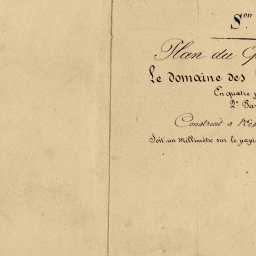 Son
Plan du G
Le domaine des
En quatre p
2e Par
Construit à l'Es
Soit un millimètre sur le papi